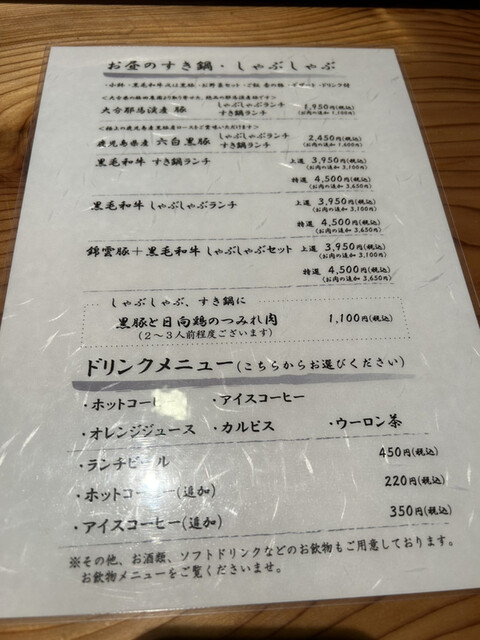 お昼のすき鍋・しゃぶしゃぶ
・小鉢・黒毛和牛又は黒豚・お野菜セット・ご飯 香の物・デザート・ドリンク付
大分耶馬渓産 豚 しゃぶしゃぶランチ すき鍋ランチ 1,950円(税込) (お肉の追加 1,100円)
鹿児島県産 六白黒豚 しゃぶしゃぶランチ すき鍋ランチ 2,450円(税込) (お肉の追加 1,600円)
黒毛和牛 すき鍋ランチ 上選 3,950円(税込) (お肉の追加 3,100円)
特選 4,500円(税込) (お肉の追加 3,650円)
黒毛和牛 しゃぶしゃぶランチ 上選 3,950円(税込) (お肉の追加 3,100円)
特選 4,500円(税込) (お肉の追加 3,650円)
錦雲豚+黒毛和牛 しゃぶしゃぶセット 上選 3,950円(税込) (お肉の追加 3,100円)
特選 4,500円(税込) (お肉の追加 3,650円)
しゃぶしゃぶ、すき鍋に
黒豚と日向鶏のつみれ肉 1,100円(税込)
(2〜3人前程度ございます)
ドリンクメニュー(こちらからお選びください)
・ホットコー ・アイスコーヒー
・オレンジジュース ・カルピス ・ウーロン茶
・ランチビール 450円(税込)
・ホットコーヒー(追加) 220円(税込)
・アイスコーヒー(追加) 350円(税込)
※その他、お酒類、ソフトドリンクなどのお飲物もご用意しております。
お飲物メニューをご覧くださいませ。